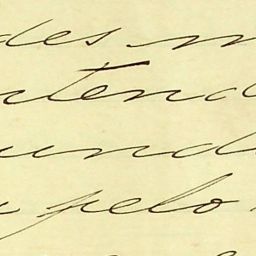 des m
ntend
und
pelo